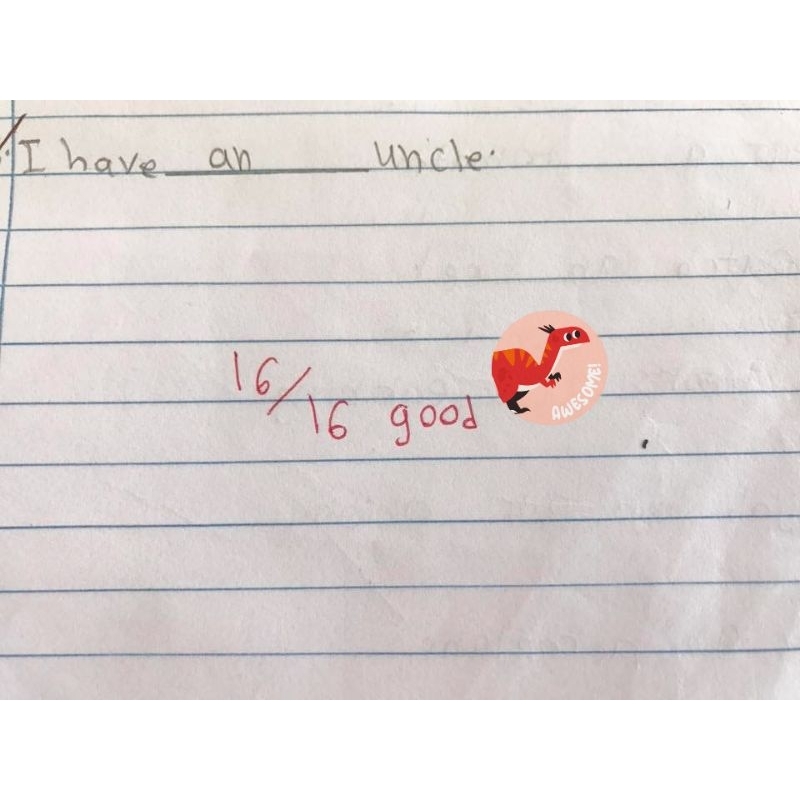 I have an uncle.
16/16 good
AWESOME!